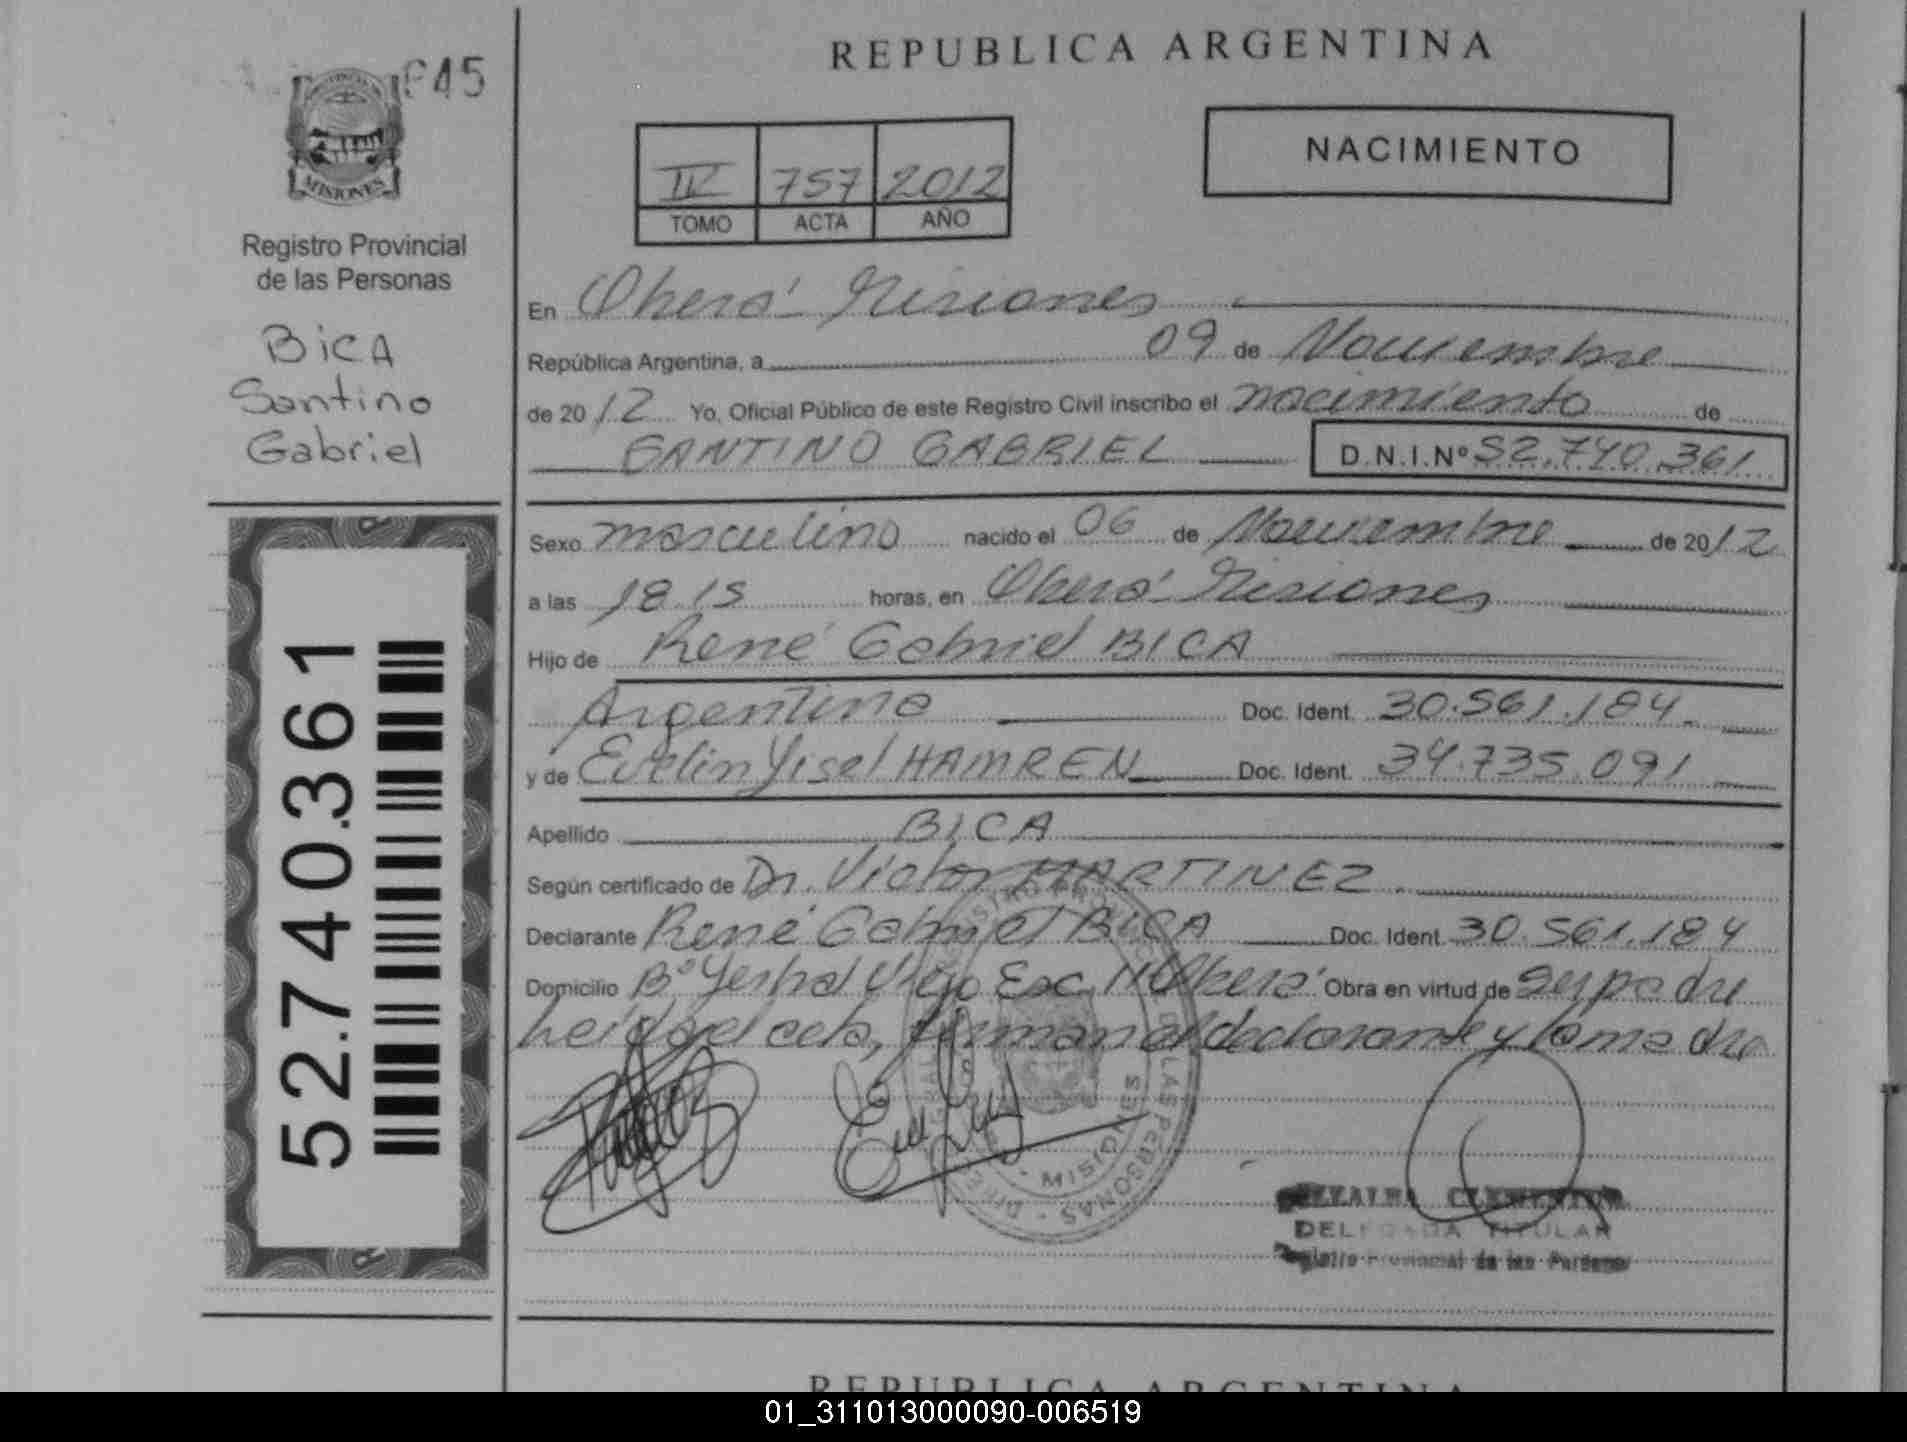 REPUBLICA ARGENTINA
45
MISIONES
Registro Provincial
de las Personas
BiCA
Santino
Gabriel
52.740.361
757 2012
TOMO ACTA AÑO
NACIMIENTO
En Oberá Misiones
República Argentina, a 09 de Noviembre
de 2012 Yo, Oficial Público de este Registro Civil inscribo el nacimiento de
SANTINO GABRIEL D.N.I.Nº 52.740.361
Sexo masculino nacido el 06 de Noviembre de 2012
a las 18.15 horas, en Oberá Misiones
Hijo de René Gabriel BICA
Argentino Doc. Ident. 30.561.184
y de Evelin Yisel HAMREN Doc. Ident. 34.735.091
Apellido BICA
Según certificado de Dr. Victor MARTINEZ
Declarante René Gabriel BICA Doc. Ident. 30.561.184
Domicilio Bº Yerbal Viejo Esc. 11 Oberá Obra en virtud de ser padre
leída el acta, firman el declarante y la madre
MISIONES
LAS PERSONAS
DELEGADA TITULAR
Registro Provincial de las Personas
REPUBLICA ARGENTINA
01_311013000090-006519